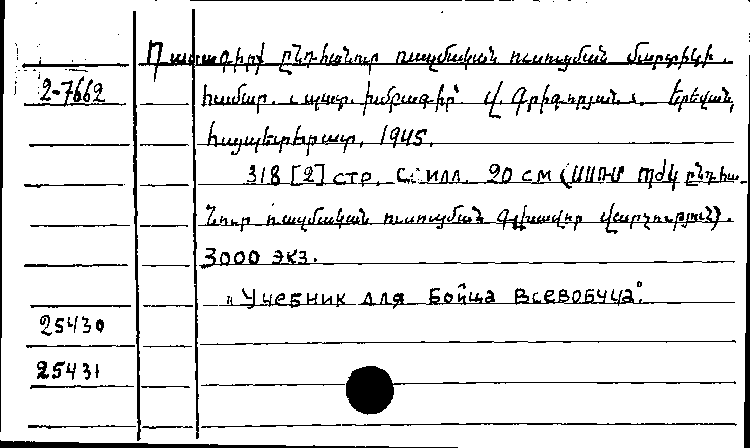 Դասագիրք ընդհանուր ռազմական ուսուցման մարտիկի
2-7662 համար. պատ. խմբագիր՝ Վ. Գրիգորյան. Երևան,
հայպետհրատ, 1945.
318 [2] стр. с илл. 20 см (ՍՍՌՄ ՊԺԿ ընդհա-
նուր ռազմական ուսուցման գլխավոր վարչություն).
3000 экз.
„Учебник для бойца всевобуча".
25430
25431